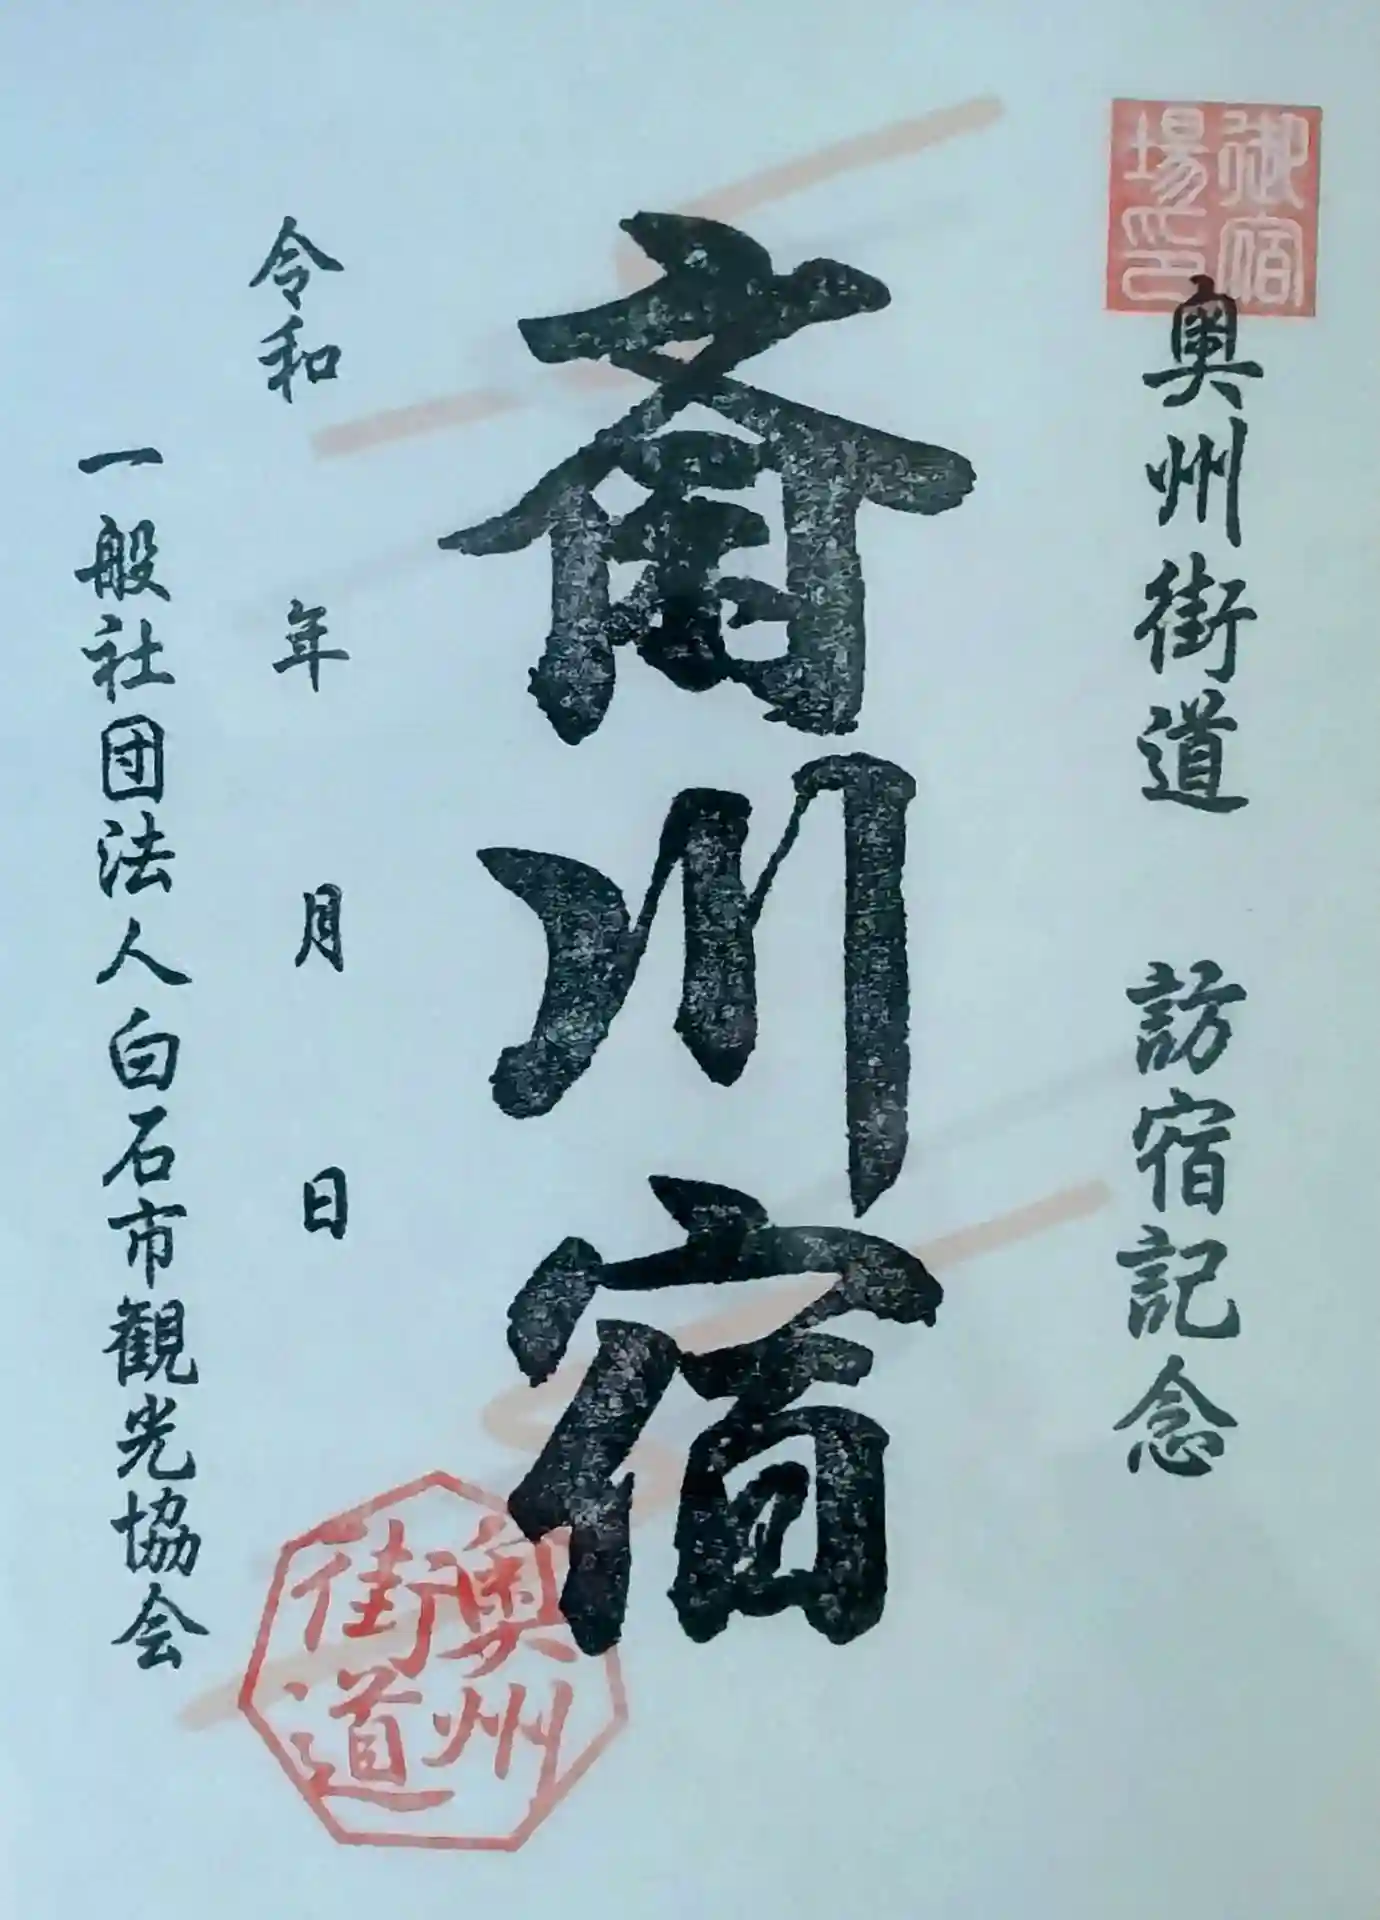 御宿場印
奥州街道 訪宿記念
斎川宿
奥州街道
令和 年 月 日
一般社団法人白石市観光協会